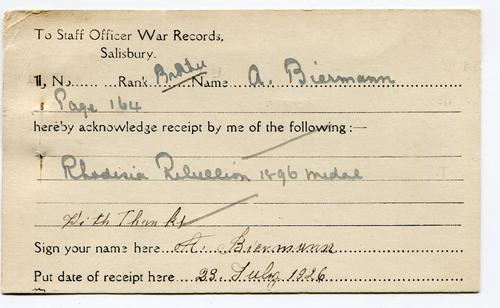 To Staff Officer War Records,
Salisbury.
I, No........ Rank Brother Name A. Biermann
Page 164
hereby acknowledge receipt by me of the following:—
Rhodesia Rebellion 1896 medal
With Thanks
Sign your name here A. Biermann
Put date of receipt here 23. July 1926